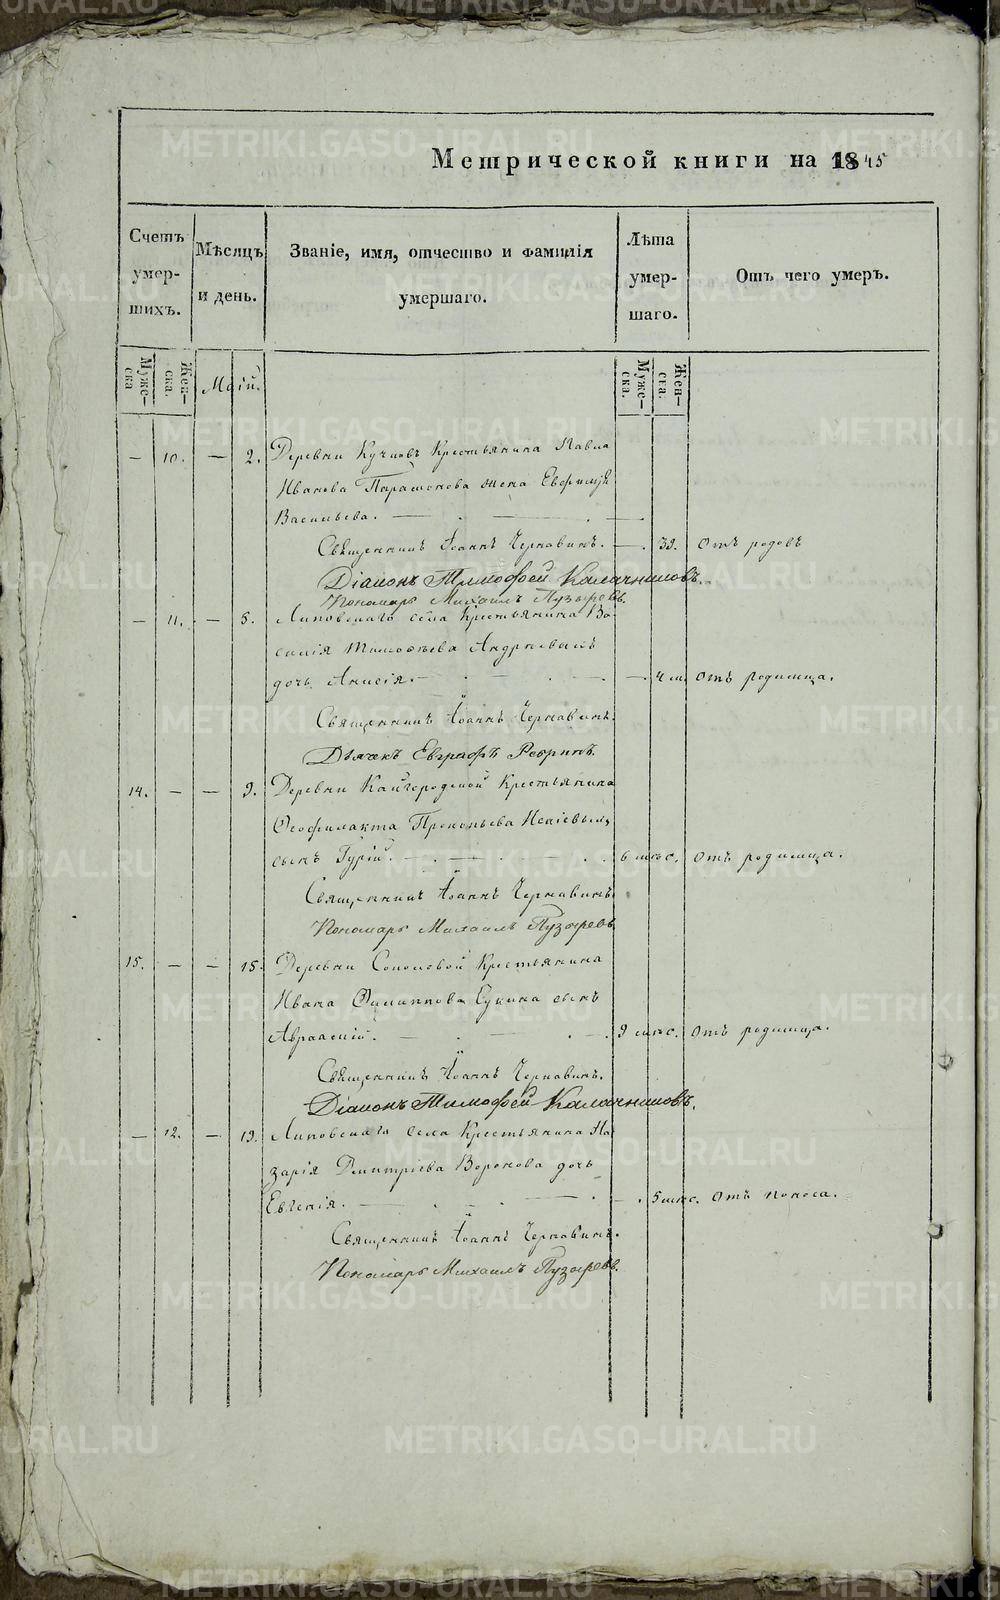 Метрической книги на 1845
Счетъ умер-шихъ.
Мѣсяцъ и день.
Званіе, имя, отчество и фамилія умершаго.
Лѣта умер-шаго.
Отъ чего умеръ.
Муже-ска
Жен-ска.
Маій.
Муже-ска.
Жен-ска.
— 10. — 2. Деревни Кучковъ Крестьянина Павла
Иванова Парамонова жена
Васильева.
Священникъ Іоаннъ Чернавинъ. — 39. Отъ родовъ
Діаконъ Тимофей Калачниковъ.
Пономарь Михаилъ Пузыревъ.
— 11. — 5. Липовскаго села Крестьянина Ва-
силія Тимофѣева
дочь Анисія. — 4 м. Отъ родимца.
Священникъ Іоаннъ Чернавинъ.
Дьячекъ Евграфъ Ребринъ.
14. — — 9. Деревни Кайгородской Крестьянина
Ѳеофилакта Прокопьева
сынъ Гурій. 6 мѣс. Отъ родимца.
Священникъ Іоаннъ Чернавинъ
Пономарь Михаилъ Пузыревъ
15. — — 15. Деревни Соколовой Крестьянина
Ивана Филиппова Сукина сынъ
Авраамій. 9 мѣс. Отъ родимца.
Священникъ Іоаннъ Чернавинъ.
Діаконъ Тимофей Калачниковъ.
— 12. — 19. Липовскаго села Крестьянина На-
зарія Дмитріева Воронова дочь
Евгенія. — 5 мѣс. Отъ поноса.
Священникъ Іоаннъ Чернавинъ.
Пономарь Михаилъ Пузыревъ.
METRIKI.GASO-URAL.RU